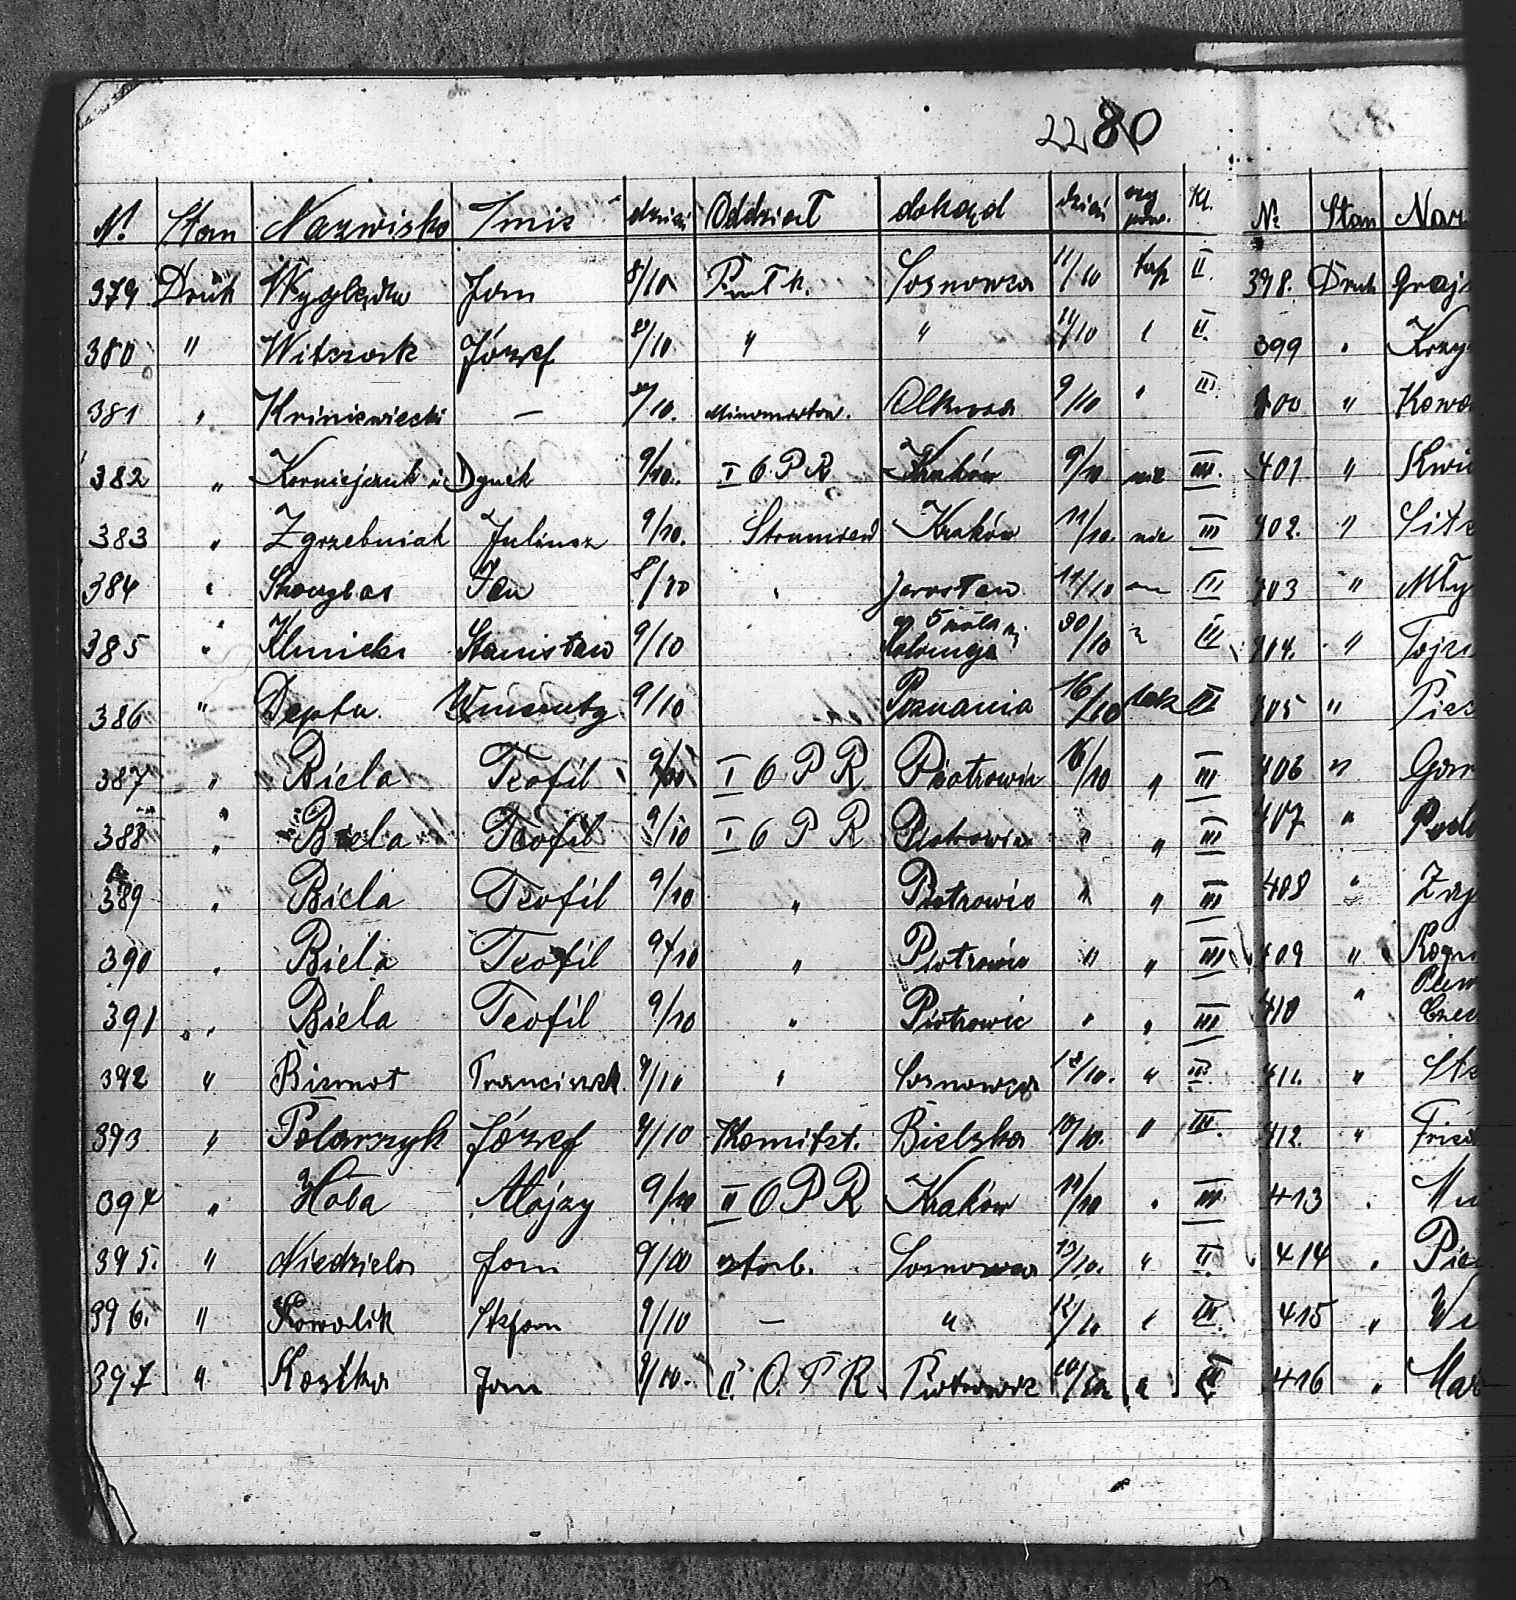 22 80
№ Stan Nazwisko Imię dzień Oddział dokąd dzień czy pow. Kl.
379 Druh Wyględa Jan 8/10 Sosnowca 11/10 tak II.
380 " Witczak Józef /10 " " 11/10 II.
381 " — /10. Olkusza 9/10 " III.
382 " Korniejczuk 9/10. I O.P.R. Kraków 9/10 nie III.
383 " Zgrzebniak Juliusz 9/10. Strumień Kraków 11/10. nie III
384 " Jan 8/10 " Jarosław 11/10 III
385 " Klinicki Stanisław 9/10 Kołomyja 30/10 " III
386 " Depta Wincenty 9/10 Poznania 16/10 tak III
387 " Biela Teofil 9/10 I O P R Piotrowic 16/10 " III
388 " Biela Teofil 9/10 I O P R Piotrowic " " III
389 " Biela Teofil 9/10 " Piotrowic " " III
390 " Biela Teofil 9/10 " Piotrowic " " III
391 " Biela Teofil 9/10 " Piotrowic " " III
392 " Biernot Franciszek 9/10 " Sosnowca 12/10. " III.
393 " Polarczyk Józef 9/10 Komitet. Bielska 10/10. " III.
394 " Hoła Alojzy 9/10 II O P R Kraków 11/10 " III
395. " Niedziela Jan 9/10 sztab. Sosnowca 13/10. " II
396. " Kowalik Stefan 9/10 — " 12/10 " III.
397 " Kostka Jan 9/10. II. O. P. R. Piotrowic 10/10 " III
№ Stan Naz
398. Druh Graj
399 " Krzy
400 " Kowa
401 "
402. " Sit
403 " Mły
404. "
405 "
406 " Gar
407 "
408 " Zaj
409 "
410 "
411. "
412. "
413 "
414 "
415 "
416 "